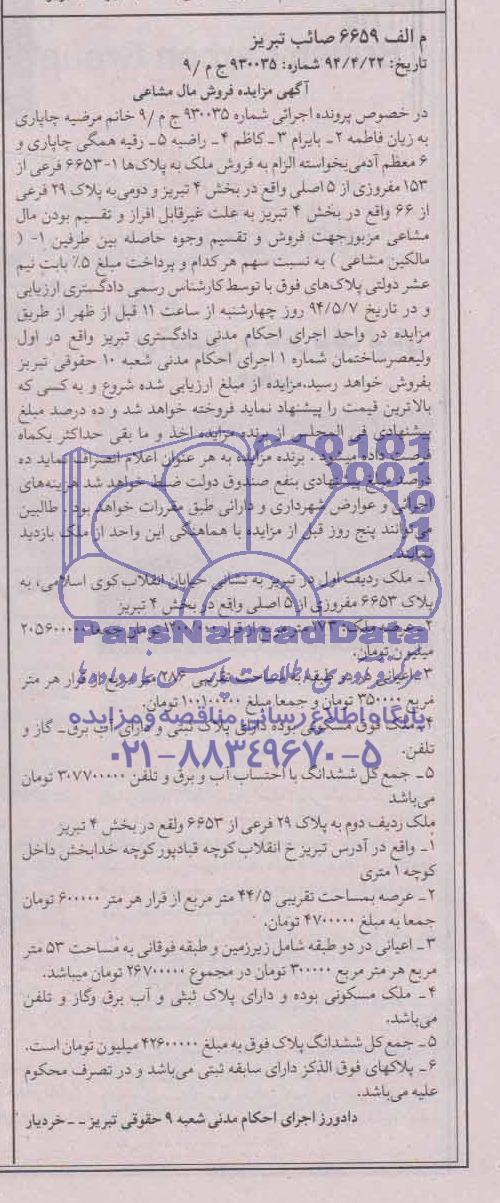 م الف ۶۶۵۹ صائب تبریز
تاریخ: ۹۴/۴/۲۲ شماره: ۹۳۰۰۳۵ ج م /۹
آگهی مزایده فروش مال مشاعی
در خصوص پرونده اجرائی شماره ۹۳۰۰۳۵ ج م /۹ خانم مرضیه چاپاری
به زیان فاطمه ۲ـ بایرام ۳ـ کاظم ۴ـ راضیه ۵ـ رقیه همگی چاپاری و
۶ معظم آدمی‌بخواسته الزام به فروش ملک به پلاک‌ها ۱-۶۶۵۳ فرعی از
۱۵۳ مفروزی از ۵ اصلی واقع در بخش ۴ تبریز و دومی‌به پلاک ۲۹ فرعی
از ۶۶ واقع در بخش ۴ تبریز به علت غیرقابل افراز و تقسیم بودن مال
مشاعی مزبورجهت فروش و تقسیم وجوه حاصله بین طرفین ۱- (
مالکین مشاعی ) به نسبت سهم هر کدام و پرداخت مبلغ ۵٪ بابت نیم
عشر دولتی پلاک‌های فوق با توسط کارشناس رسمی دادگستری ارزیابی
و در تاریخ ۹۴/۵/۷ روز چهارشنبه از ساعت ۱۱ قبل از ظهر از طریق
مزایده در واحد اجرای احکام مدنی دادگستری تبریز واقع در اول
ولیعصرساختمان شماره ۱ اجرای احکام مدنی شعبه ۱۰ حقوقی تبریز
بفروش خواهد رسید،مزایده از مبلغ ارزیابی شده شروع و به کسی که
بالاترین قیمت را پیشنهاد نماید فروخته خواهد شد و ده درصد مبلغ
پیشنهادی فی المجلس از برنده مزایده اخذ و ما بقی حداکثر یکماه
فرصت داده میشود . برنده مزایده به هر عنوان اعلام انصراف نماید ده
درصد مبلغ پیشنهادی بنفع صندوق دولت ضبط خواهد شد هزینه‌های
اجرایی و عوارض شهرداری و دارائی طبق مقررات خواهد بود . طالبین
می‌توانند پنج روز قبل از مزایده با هماهنگی این واحد از ملک بازدید
نمایند .
۱ـ ملک ردیف اول در تبریز به نشانی خیابان انقلاب کوی اسلامی، به
پلاک ۶۶۵۳ مفروزی از ۵ اصلی واقع در بخش ۴ تبریز
ParsNamadData
۲ـ عرصه ملک متر مربع از قرار تومان جمعا ۲۰۵۶۰۰۰۰۰
میلیون تومان.
۳ـ اعیانی در دو طبقه به مساحت تقریبی ۲۸۶ متر مربع از قرار هر متر
مربع ۳۵۰۰۰۰ تومان و جمعا مبلغ ۱۰۰۱۰۰۰۰۰ تومان.
پایگاه اطلاع رسانی مناقصه و مزایده
۴ـ ملک فوق مسکونی بوده دارای پلاک ثبتی و دارای آب برق ـ گاز و
تلفن.
۰۲۱-۸۸۳۴۹۶۷۰-۵
۵ـ جمع کل ششدانگ با احتساب آب و برق و تلفن ۳۰۷۷۰۰۰۰۰ تومان
می‌باشد
ملک ردیف دوم به پلاک ۲۹ فرعی از ۶۶۵۳ ولقع در بخش ۴ تبریز
۱ـ واقع در آدرس تبریز خ انقلاب کوچه قبادپور کوچه خدابخش داخل
کوچه ۱ متری
۲ـ عرصه بمساحت تقریبی ۴۴/۵ متر مربع از قرار هر متر ۶۰۰۰۰۰ تومان
جمعا به مبلغ ۴۷۰۰۰۰۰ تومان،
۳ـ اعیانی در دو طبقه شامل زیرزمین و طبقه فوقانی به مساحت ۵۳ متر
مربع هر متر مربع ۳۰۰۰۰۰ تومان در مجموع ۲۶۷۰۰۰۰۰ تومان میباشد.
۴ـ ملک مسکونی بوده و دارای پلاک ثبثی و آب برق وگاز و تلفن
می‌باشد.
۵ـ جمع کل ششدانگ پلاک فوق به مبلغ ۴۲۶۰۰۰۰۰ میلیون تومان است.
۶ـ پلاکهای فوق الذکر دارای سابقه ثبتی می‌باشد و در تصرف محکوم
علیه می‌باشد.
دادورز اجرای احکام مدنی شعبه ۹ حقوقی تبریز ــ خردیار